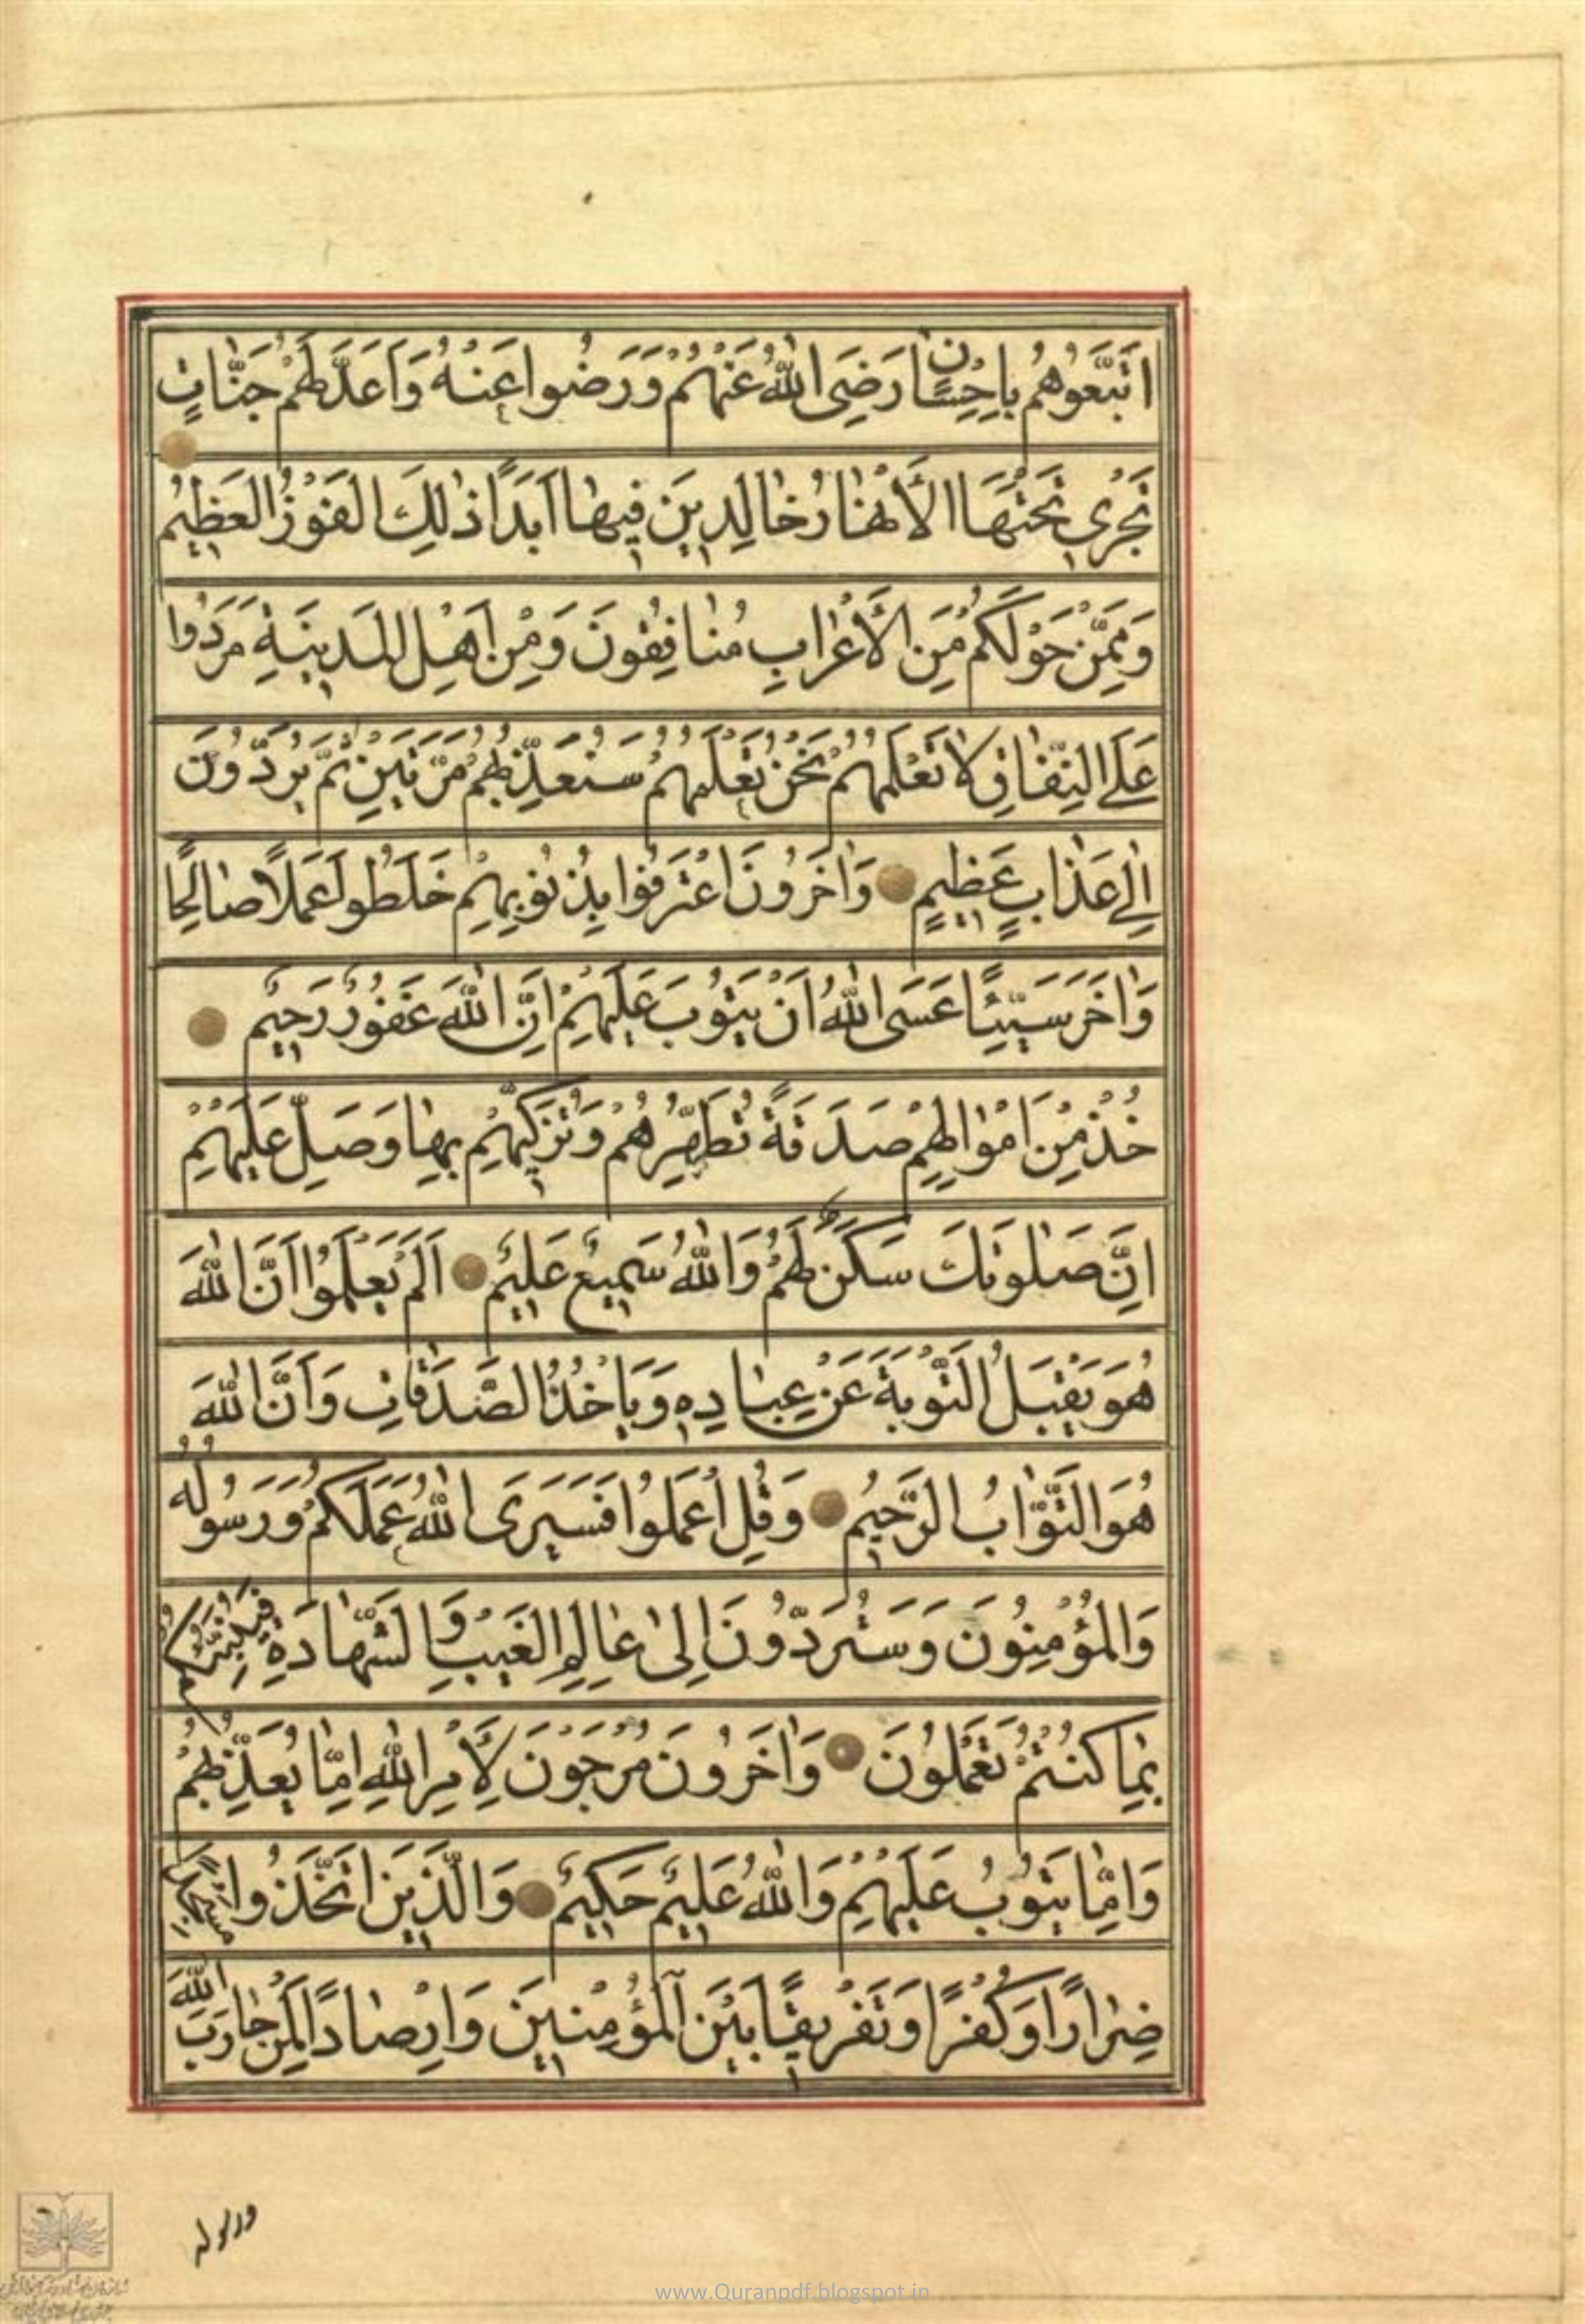 اتَّبَعُوهُمْ بِاِحْسَانٍ رَضِيَ اللّٰهُ عَنْهُمْ وَرَضُوا عَنْهُ وَاَعَدَّ لَهُمْ جَنَّاتٍ
تَجْرِي تَحْتَهَا الْاَنْهَارُ خَالِدِينَ فِيهَا اَبَدًا ذٰلِكَ الْفَوْزُ الْعَظِيمُ
وَمِمَّنْ حَوْلَكُمْ مِنَ الْاَعْرَابِ مُنَافِقُونَ وَمِنْ اَهْلِ الْمَدِينَةِ مَرَدُوا
عَلَى النِّفَاقِ لَا تَعْلَمُهُمْ نَحْنُ نَعْلَمُهُمْ سَنُعَذِّبُهُمْ مَرَّتَيْنِ ثُمَّ يُرَدُّونَ
اِلٰى عَذَابٍ عَظِيمٍ وَاٰخَرُونَ اعْتَرَفُوا بِذُنُوبِهِمْ خَلَطُوا عَمَلًا صَالِحًا
وَاٰخَرَ سَيِّئًا عَسَى اللّٰهُ اَنْ يَتُوبَ عَلَيْهِمْ اِنَّ اللّٰهَ غَفُورٌ رَحِيمٌ
خُذْ مِنْ اَمْوَالِهِمْ صَدَقَةً تُطَهِّرُهُمْ وَتُزَكِّيهِمْ بِهَا وَصَلِّ عَلَيْهِمْ
اِنَّ صَلٰوتَكَ سَكَنٌ لَهُمْ وَاللّٰهُ سَمِيعٌ عَلِيمٌ اَلَمْ يَعْلَمُوا اَنَّ اللّٰهَ
هُوَ يَقْبَلُ التَّوْبَةَ عَنْ عِبَادِهِ وَيَاْخُذُ الصَّدَقَاتِ وَاَنَّ اللّٰهَ
هُوَ التَّوَّابُ الرَّحِيمُ وَقُلِ اعْمَلُوا فَسَيَرَى اللّٰهُ عَمَلَكُمْ وَرَسُولُهُ
وَالْمُؤْمِنُونَ وَسَتُرَدُّونَ اِلٰى عَالِمِ الْغَيْبِ وَالشَّهَادَةِ فَيُنَبِّئُكُمْ
بِمَا كُنْتُمْ تَعْمَلُونَ وَاٰخَرُونَ مُرْجَوْنَ لِاَمْرِ اللّٰهِ اِمَّا يُعَذِّبُهُمْ
وَاِمَّا يَتُوبُ عَلَيْهِمْ وَاللّٰهُ عَلِيمٌ حَكِيمٌ وَالَّذِينَ اتَّخَذُوا مَسْجِدًا
ضِرَارًا وَكُفْرًا وَتَفْرِيقًا بَيْنَ الْمُؤْمِنِينَ وَاِرْصَادًا لِمَنْ حَارَبَ اللّٰهَ
ورسوله
www.Quranpdf.blogspot.in